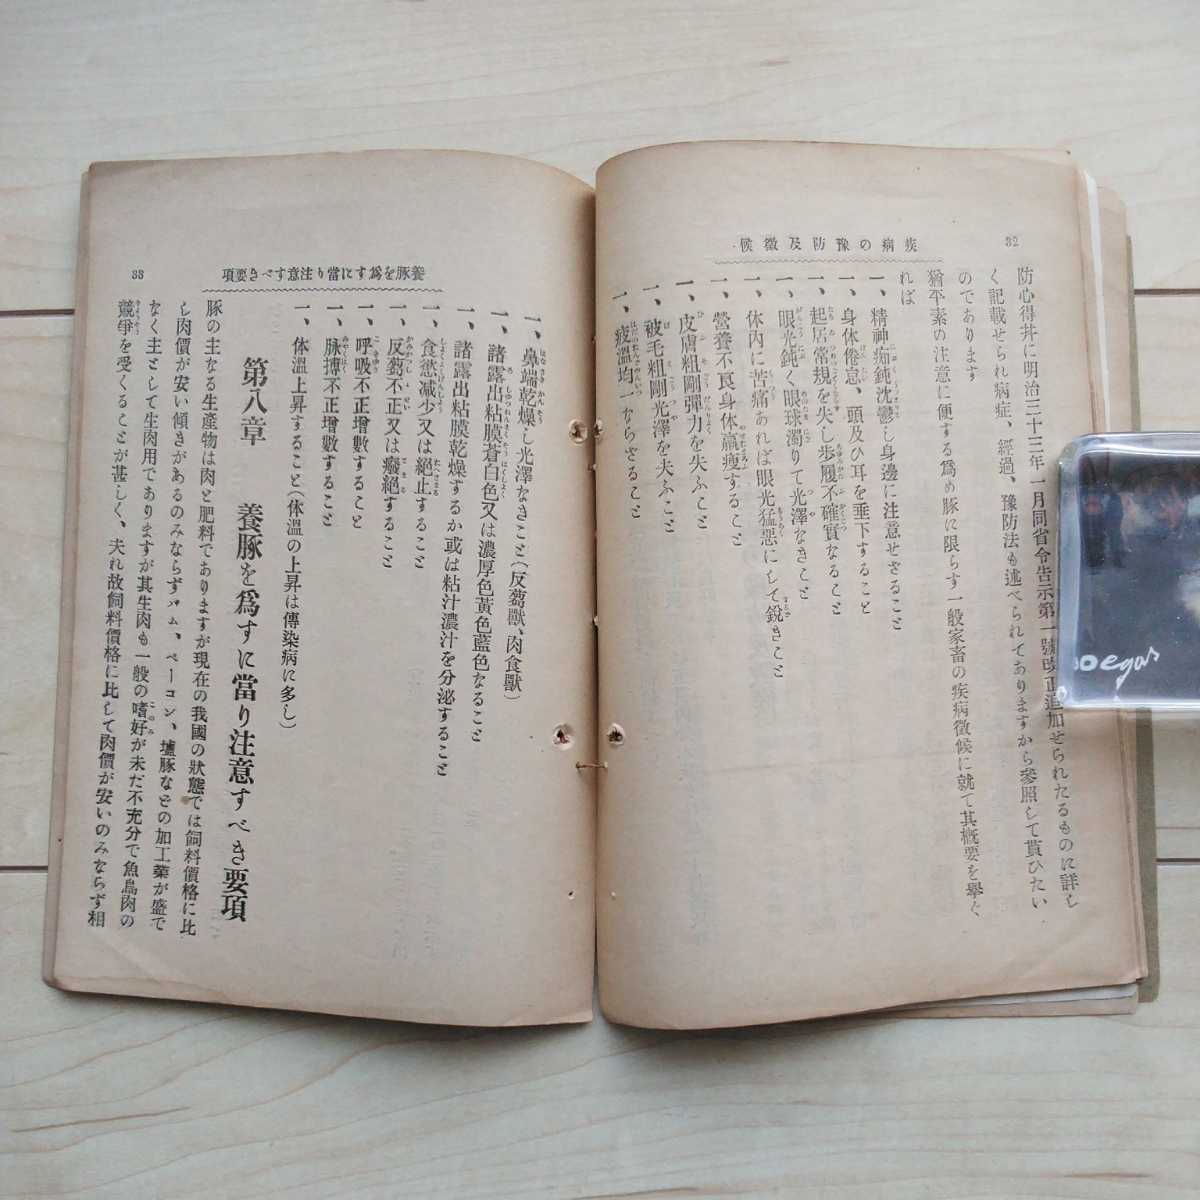 疾病の豫防及徵候
32
防心得幷に明治三十三年一月同省令告示第一號改正追加せられたるものに詳し
く記載せられ病症、經過、豫防法も述べられてありますから參照して貰ひたい
のであります
猶平素の注意に便する爲め豚に限らず一般家畜の疾病徵候に就て其槪要を擧ぐ
れば
一、精神痴鈍沈鬱し身邊に注意せざること
一、身体倦怠、頭及ひ耳を垂下すること
一、起居常規を失し步履不確實なること
一、眼光鈍く眼球濁りて光澤なきこと
一、体內に苦痛あれば眼光猛惡にして銳きこと
一、營養不良身体羸瘦すること
一、皮膚粗剛彈力を失ふこと
一、被毛粗剛光澤を失ふこと
一、皮溫均一ならざること
養豚を爲すに當り注意すべき要項
33
一、鼻端乾燥し光澤なきこと(反芻獸、肉食獸)
一、諸露出粘膜蒼白色又は濃厚色黃色藍色なること
一、諸露出粘膜乾燥するか或は粘汁濃汁を分泌すること
一、食慾减少又は絕止すること
一、反芻不正又は癈絕すること
一、呼吸不正增數すること
一、脉搏不正增數すること
一、体溫上昇すること(体溫の上昇は傳染病に多し)
第八章 養豚を爲すに當り注意すべき要項
豚の主なる生產物は肉と肥料でありますが現在の我國の狀態では飼料價格に比
し肉價が安い傾きがあるのみならずハム、ベーコン、壚豚などの加工業が盛で
なく主として生肉用でありますが其生肉も一般の嗜好が未だ不充分で魚鳥肉の
競爭を受くることが甚しく、夫れ故飼料價格に比して肉價が安いのみならず相
oegas